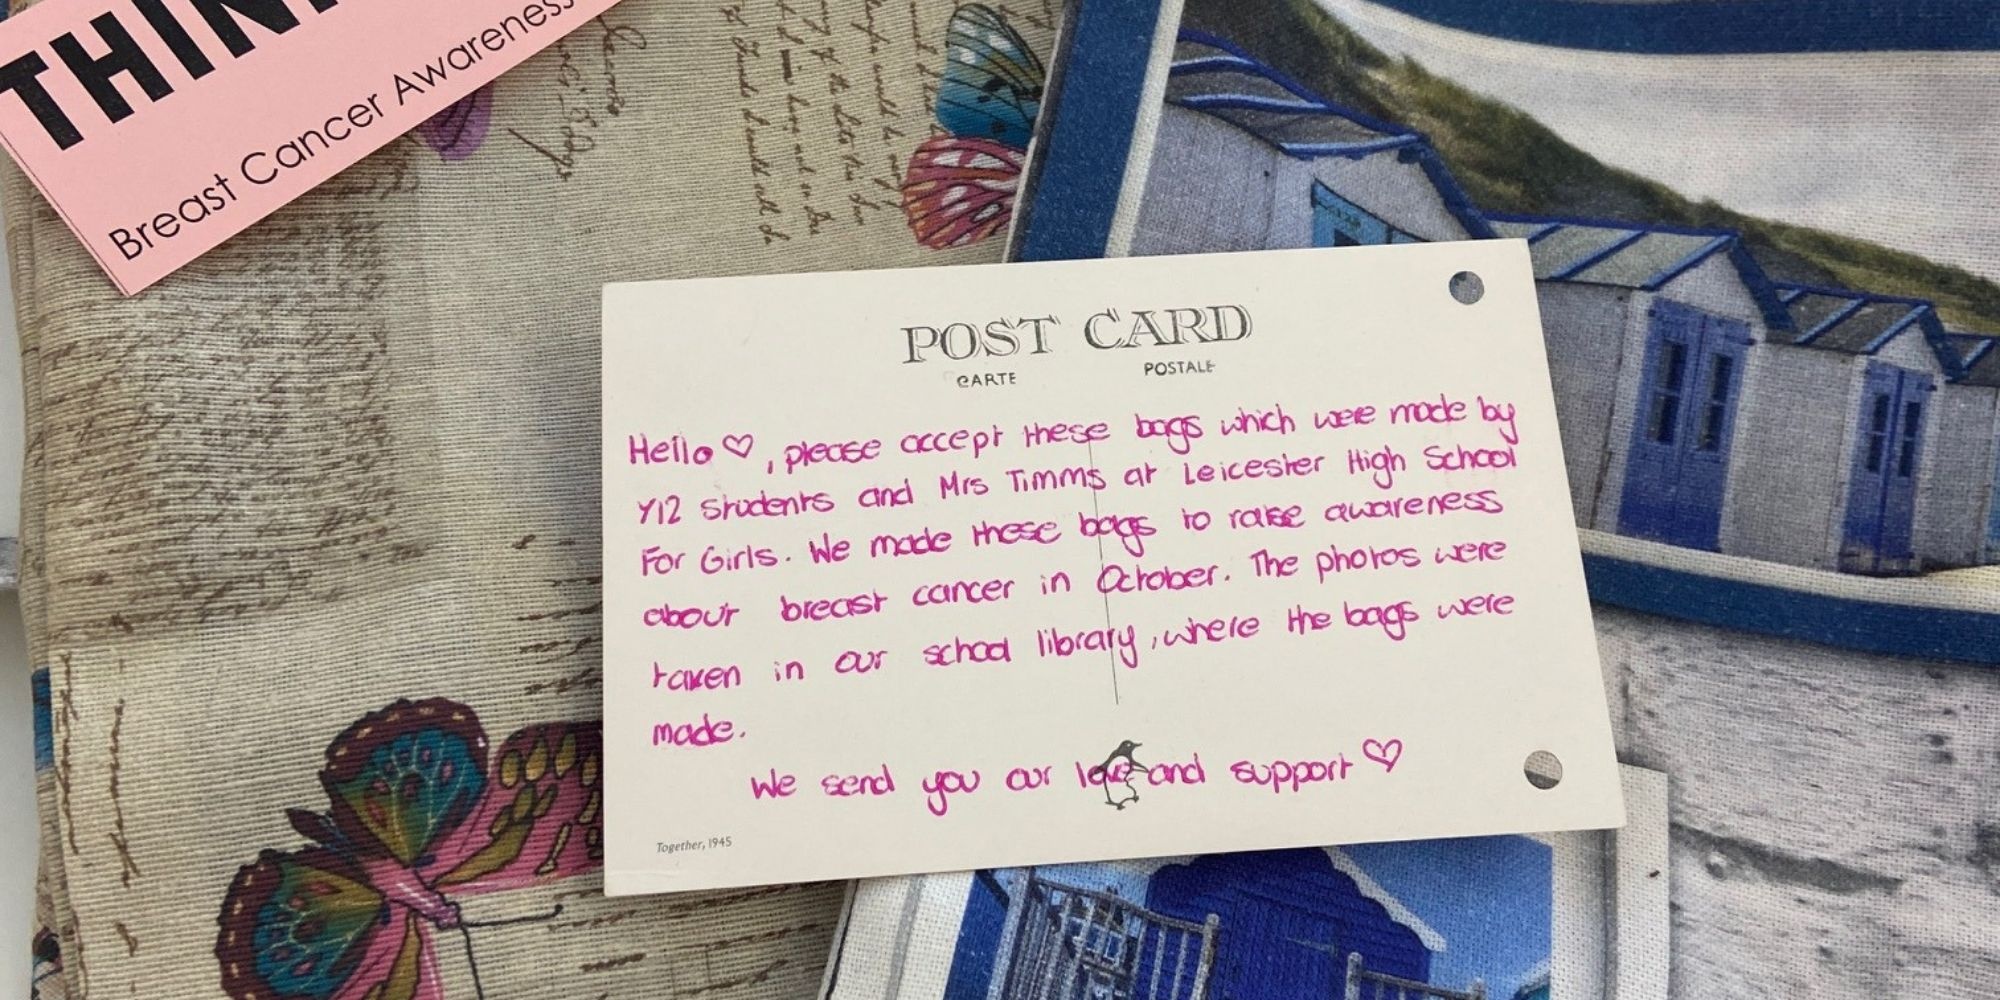 THIN
Breast Cancer Awareness
POST CARD
CARTE POSTALE
Hello♡, please accept these bags which were made by
Y12 students and Mrs Timms at Leicester High School
For Girls. We made these bags to raise awareness
about breast cancer in October. The photos were
taken in our school library, where the bags were
made.
We send you our love and support♡
Together, 1945